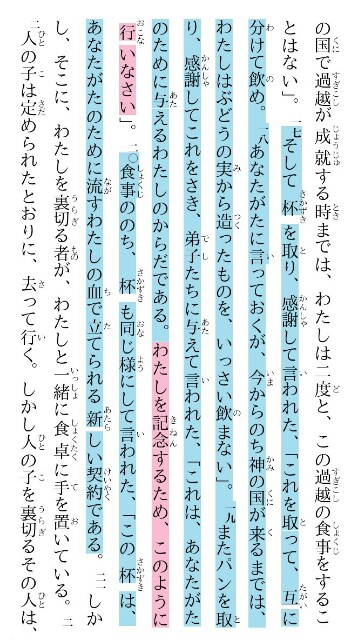 の国で過越が成就する時までは、わたしは二度と、この過越の食事をするこ
とはない」。一七そして杯を取り、感謝して言われた、「これを取って、互に
分けて飲め。一八あなたがたに言っておくが、今からのち神の国が来るまでは、
わたしはぶどうの実から造ったものを、いっさい飲まない」。一九またパンを取
り、感謝してこれをさき、弟子たちに与えて言われた、「これは、あなたがた
のために与えるわたしのからだである。わたしを記念するため、このように
行いなさい」。二〇食事ののち、杯も同じ様にして言われた、「この杯は、
あなたがたのために流すわたしの血で立てられる新しい契約である。二一しか
し、そこに、わたしを裏切る者が、わたしと一緒に食卓に手を置いている。二
二人の子は定められたとおりに、去って行く。しかし人の子を裏切るその人は、